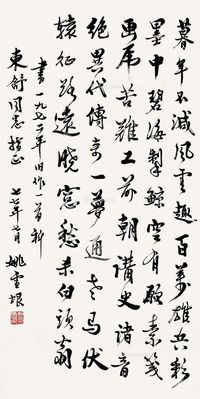 暮年不減風雲趣百萬雄兵彩
墨中碧海掣鯨空有願素箋
画虎苦難工前朝史諸音
絕異代傳奇一夢通老馬伏
轅征路遠曉窗愁杀白頭翁
書一九七二年旧作一首祈
東舒同志指正
七七年七月 姚雪垠